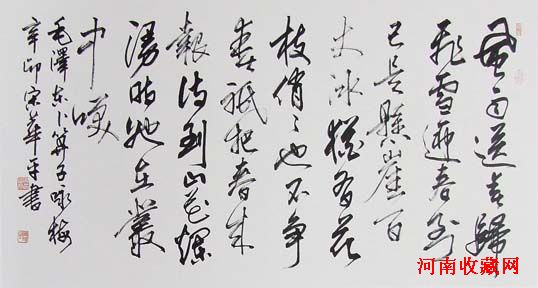 風雨送春歸
飛雪迎春到
已是懸崖百
丈冰猶有花
枝俏俏也不争
春祇把春来
報待到山花爛
漫時她在叢
中笑
毛澤东卜算子咏梅
辛卯宋華平書
河南收藏网